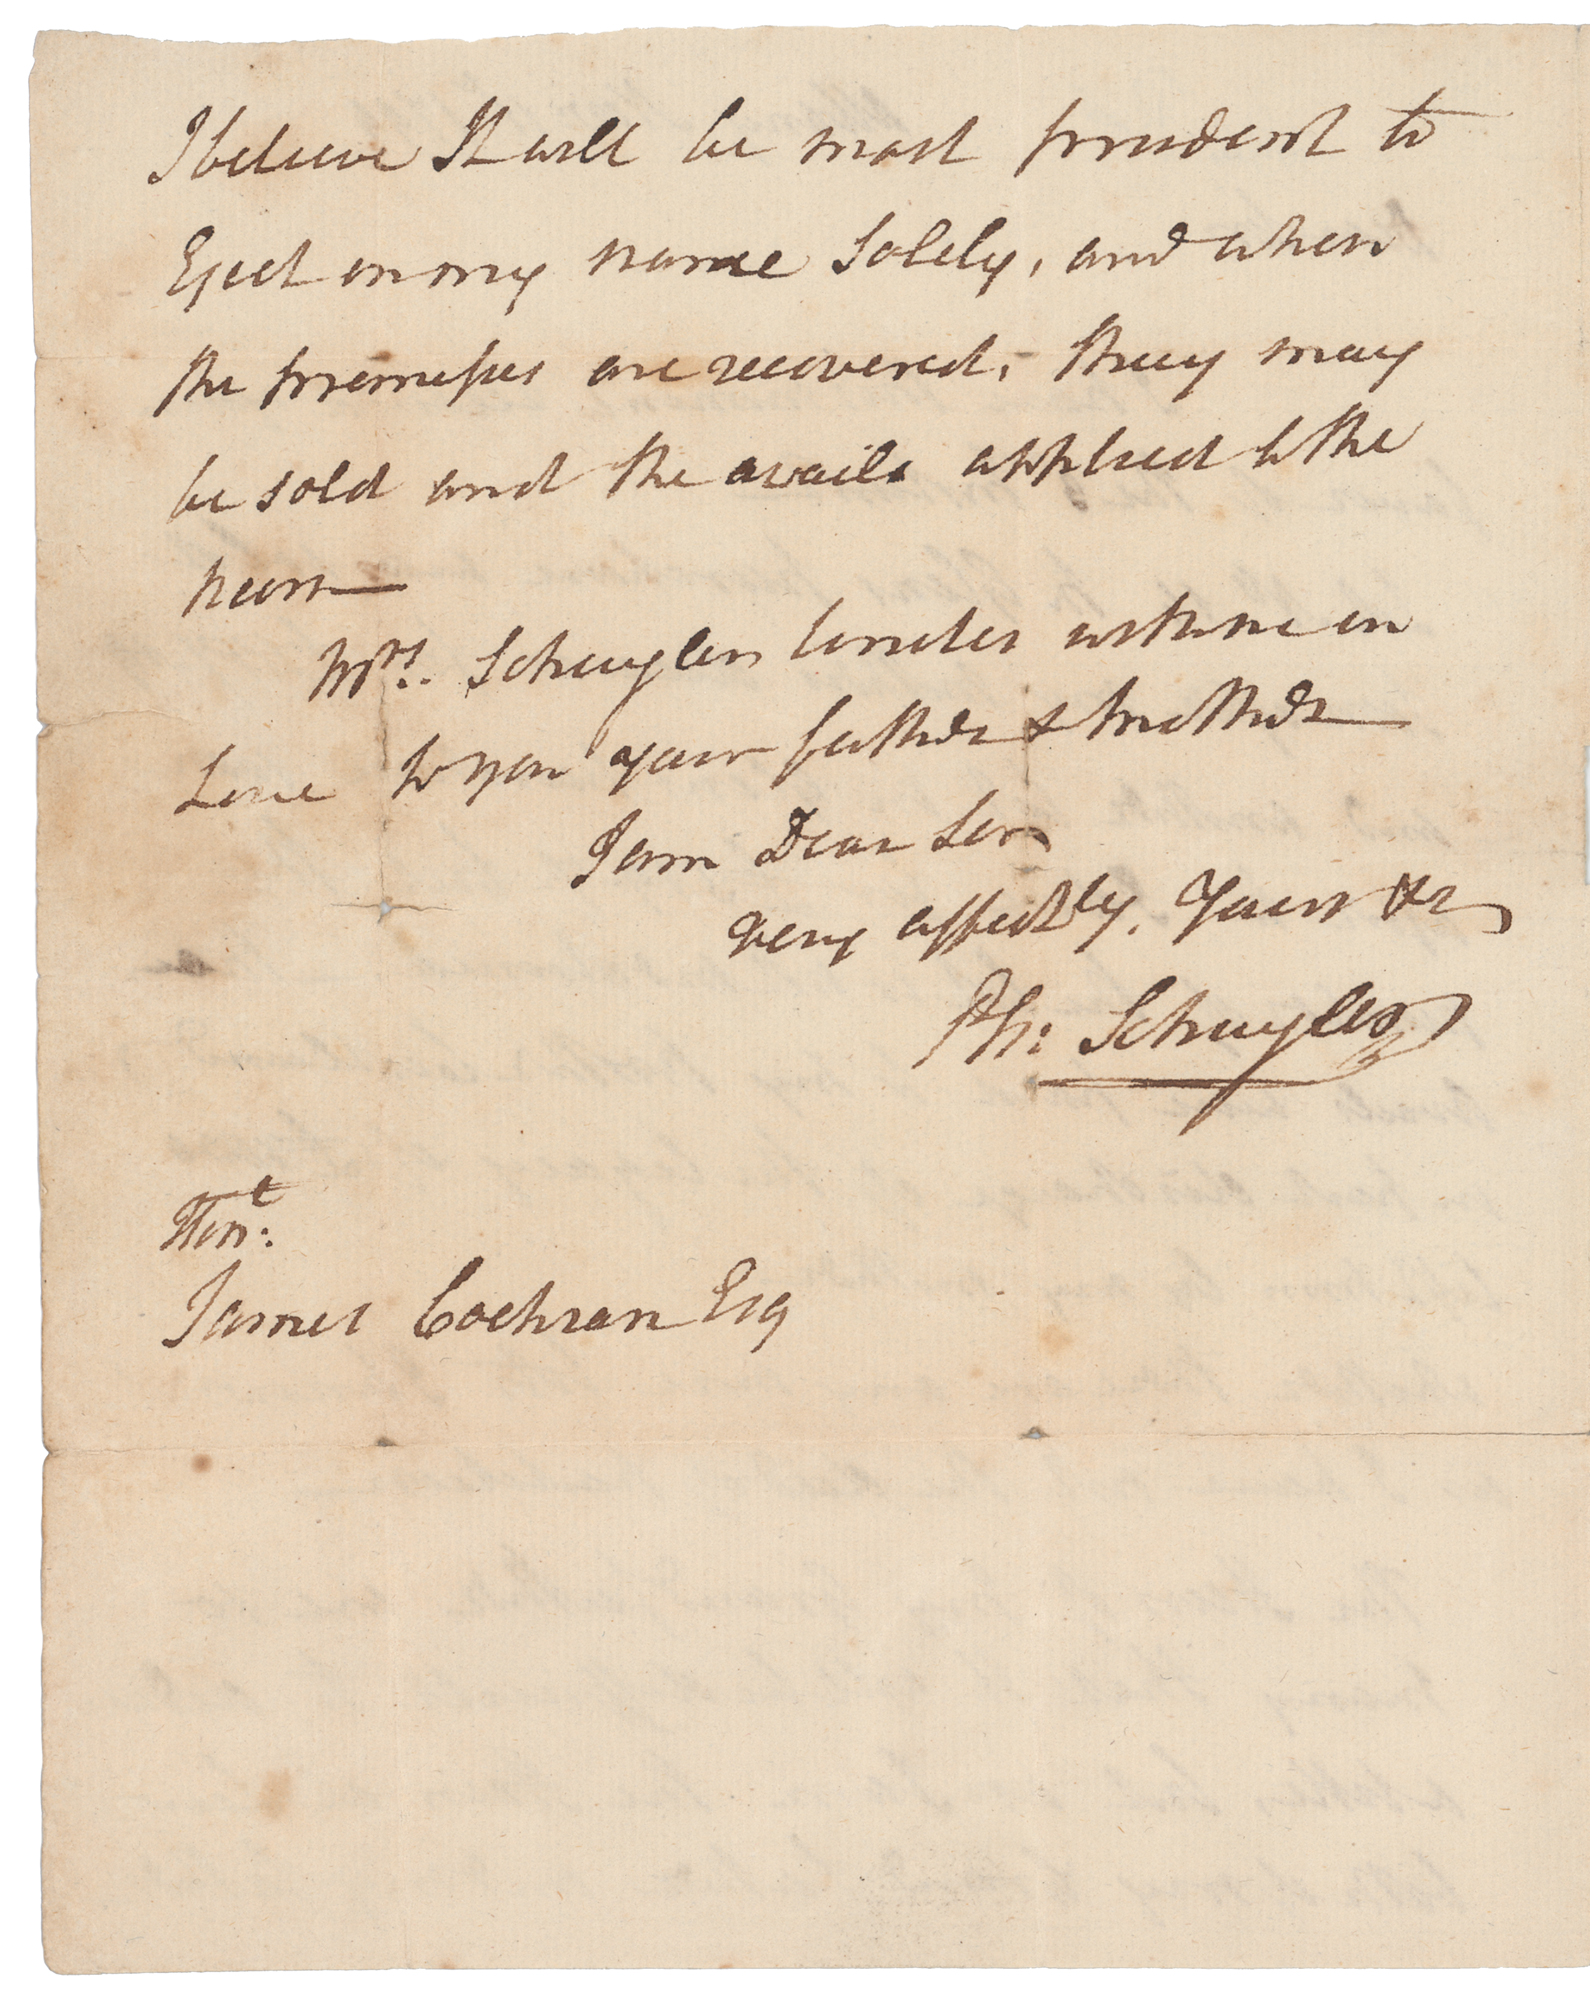 I believe It will be most prudent to
Eject in my name Solely, and when
the premises are recovered, they may
be sold and the avails applied to the
heirs
Mrs. Schuyler unites with me in
Love to you your father & brother
I am Dear Sir
very affectly. Yours &c
Ph: Schuyler
Honl:
James Cochran Esq